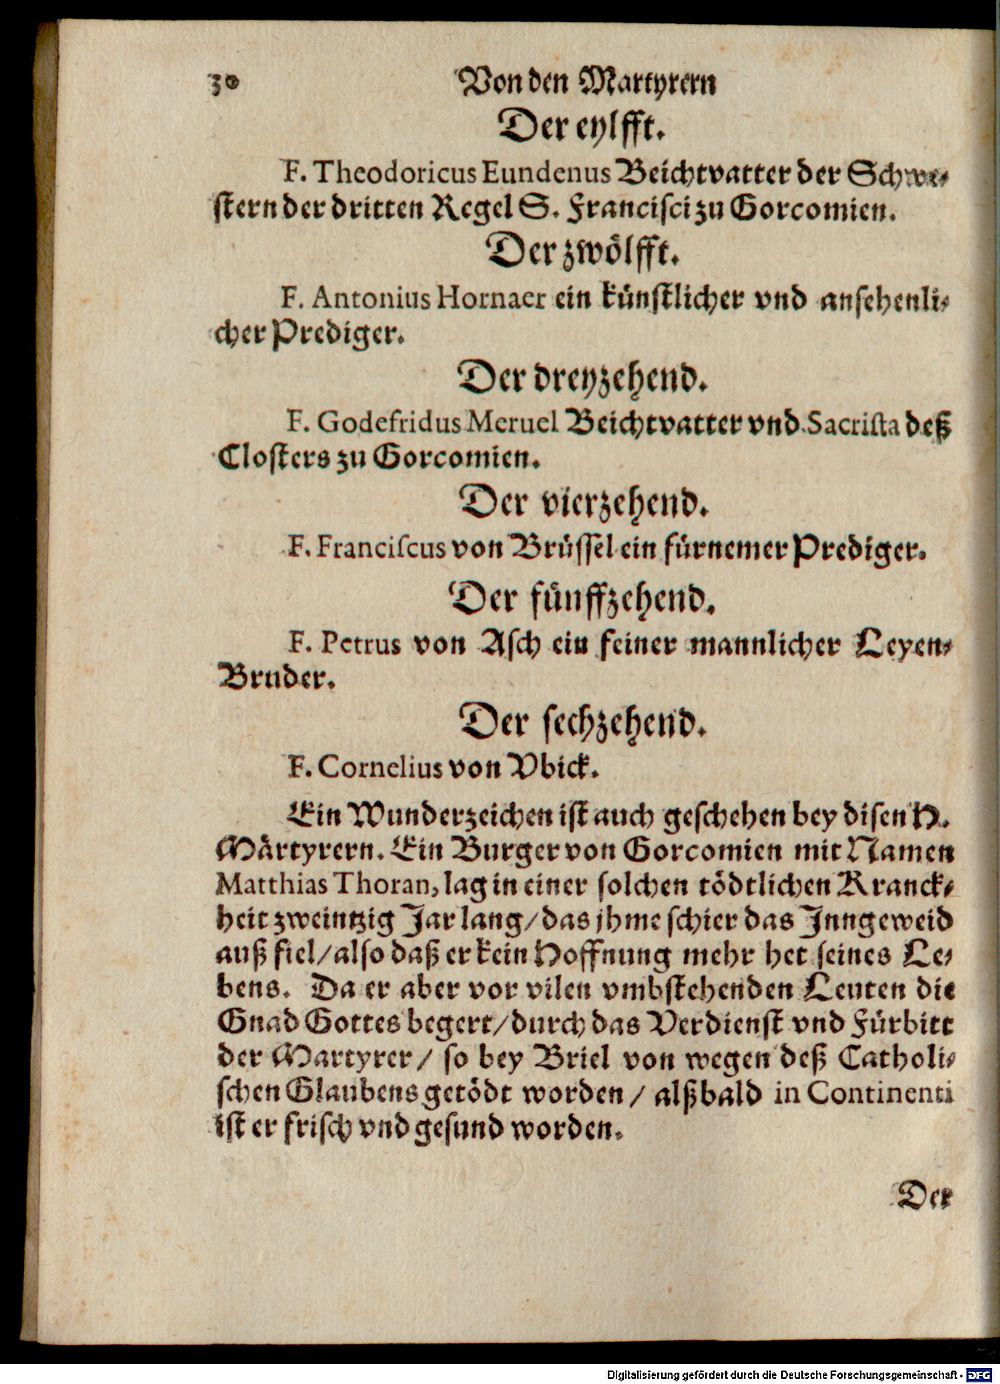 30 Von den Martyrern
Der eylfft.
F. Theodoricus Eundenus Beichtvatter der Schwe-
stern der dritten Regel S. Francisci zu Gorcomien.
Der zwölfft.
F. Antonius Hornaer ein künstlicher vnd ansehenli-
cher Prediger.
Der dreyzehend.
F. Godefridus Meruel Beichtvatter vnd Sacrista deß
Closters zu Gorcomien.
Der vierzehend.
F. Franciscus von Brüssel ein fürnemer Prediger.
Der fünffzehend.
F. Petrus von Asch ein feiner mannlicher Leyen-
Bruder.
Der sechzehend.
F. Cornelius von Vbick.
Ein Wunderzeichen ist auch geschehen bey disen H.
Märtyrern. Ein Burger von Gorcomien mit Namen
Matthias Thoran, lag in einer solchen tödtlichen Kranck-
heit zweintzig Jar lang/das jhme schier das Jnngeweid
auß fiel/also daß er kein Hoffnung mehr het seines Le-
bens. Da er aber vor vilen vmbstehenden Leuten die
Gnad Gottes begert/durch das Verdienst vnd Fürbitt
der Martyrer/ so bey Briel von wegen deß Catholi-
schen Glaubens getödt worden / alßbald in Continenti
ist er frisch vnd gesund worden.
Der
Digitalisierung gefördert durch die Deutsche Forschungsgemeinschaft - DFG